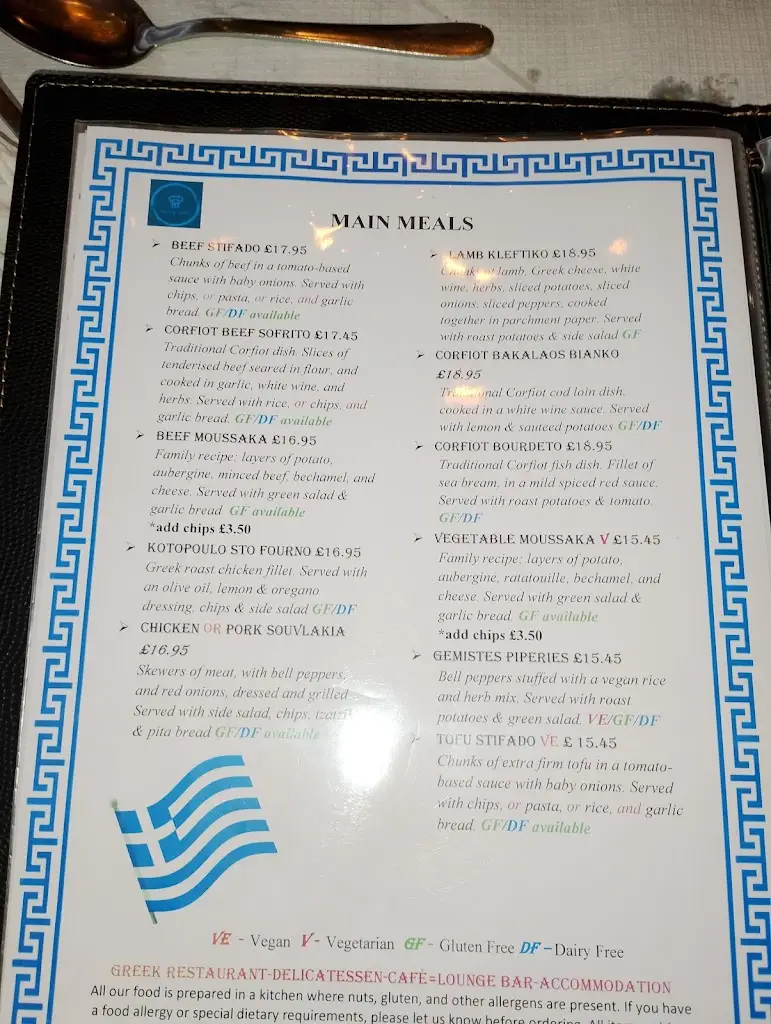 MAIN MEALS
BEEF STIFADO £17.95
Chunks of beef in a tomato-based
sauce with baby onions. Served with
chips, or pasta, or rice, and garlic
bread. GF/DF available
CORFIOT BEEF SOFRITO £17.45
Traditional Corfiot dish. Slices of
tenderised beef seared in flour, and
cooked in garlic, white wine, and
herbs. Served with rice, or chips, and
garlic bread. GF/DF available
BEEF MOUSSAKA £16.95
Family recipe; layers of potato,
aubergine, minced beef, bechamel, and
cheese. Served with green salad &
garlic bread GF available
*add chips £3.50
KOTOPOULO STO FOURNO £16.95
Greek roast chicken fillet. Served with
an olive oil, lemon & oregano
dressing, chips & side salad GF/DF
CHICKEN OR PORK SOUVLAKIA
£16.95
Skewers of meat, with bell peppers,
and red onions, dressed and grilled
Served with side salad, chips, tzatziki
& pita bread GF/DF available
LAMB KLEFTIKO £18.95
Chunks of lamb, Greek cheese, white
wine, herbs, sliced potatoes, sliced
onions, sliced peppers, cooked
together in parchment paper. Served
with roast potatoes & side salad GF
CORFIOT BAKALAOS BIANKO
£18.95
Traditional Corfiot cod loin dish,
cooked in a white wine sauce. Served
with lemon & sauteed potatoes GF/DF
CORFIOT BOURDETO £18.95
Traditional Corfiot fish dish. Fillet of
sea bream, in a mild spiced red sauce.
Served with roast potatoes & tomato.
GF/DF
VEGETABLE MOUSSAKA V £15.45
Family recipe; layers of potato,
aubergine, ratatouille, bechamel, and
cheese. Served with green salad &
garlic bread. GF available
*add chips £3.50
GEMISTES PIPERIES £15.45
Bell peppers stuffed with a vegan rice
and herb mix. Served with roast
potatoes & green salad. VE/GF/DF
TOFU STIFADO VE £ 15.45
Chunks of extra firm tofu in a tomato-
based sauce with baby onions. Served
with chips, or pasta, or rice, and garlic
bread. GF/DF available
VE - Vegan V- Vegetarian GF- Gluten Free DF-Dairy Free
GREEK RESTAURANT-DELICATESSEN-CAFÉ=LOUNGE BAR-ACCOMMODATION
All our food is prepared in a kitchen where nuts, gluten, and other allergens are present. If you have
a food allergy or special dietary requirements, please let us know before ordering.